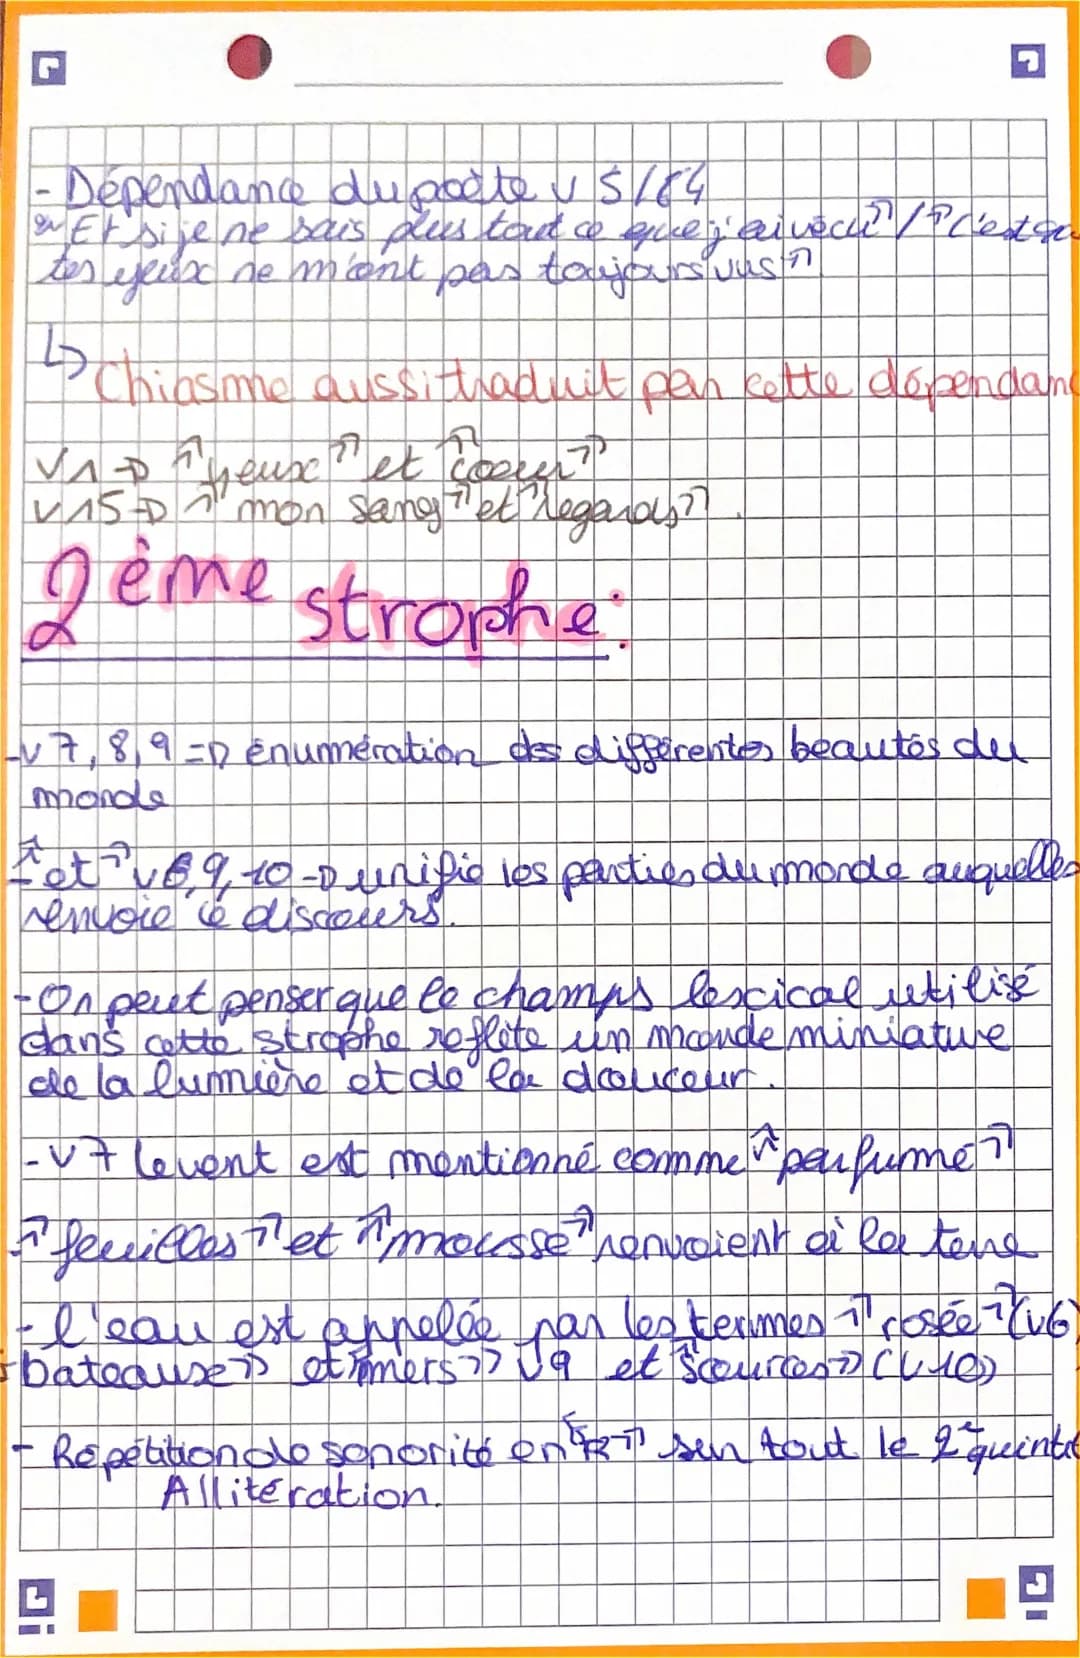 - Dépendance du poète v 5/84
" Et si je ne sais plus tout ce que j'ai vécu" / "C'est q
tes yeux ne m'ont pas toujours vus"
↳ Chiasme aussi traduit par cette dépendanc
v1 => "yeux" et "coeur"
v15 => "mon sang" et "regards".
2ème strophe:
-v 7, 8, 9 => énumération des différentes beautés du
monde
"et" v8, 9, 10 -> unifie les parties du monde auquelles
renvoie le discours.
- On peut penser que le champs lexical utilisé
dans cette strophe reflète un monde miniature
de la lumière et de la douceur.
- v7 le vent est mentionné comme "parfumé"
"feuilles" et "mousse" renvoient à la terre
- l'eau est appelée par les termes "rosée" (v6)
"bateaux" et "mers" v9 et "sources" (v10)
- Répétition de sonorité en "R" sur tout le 2e quinti
Allitération.